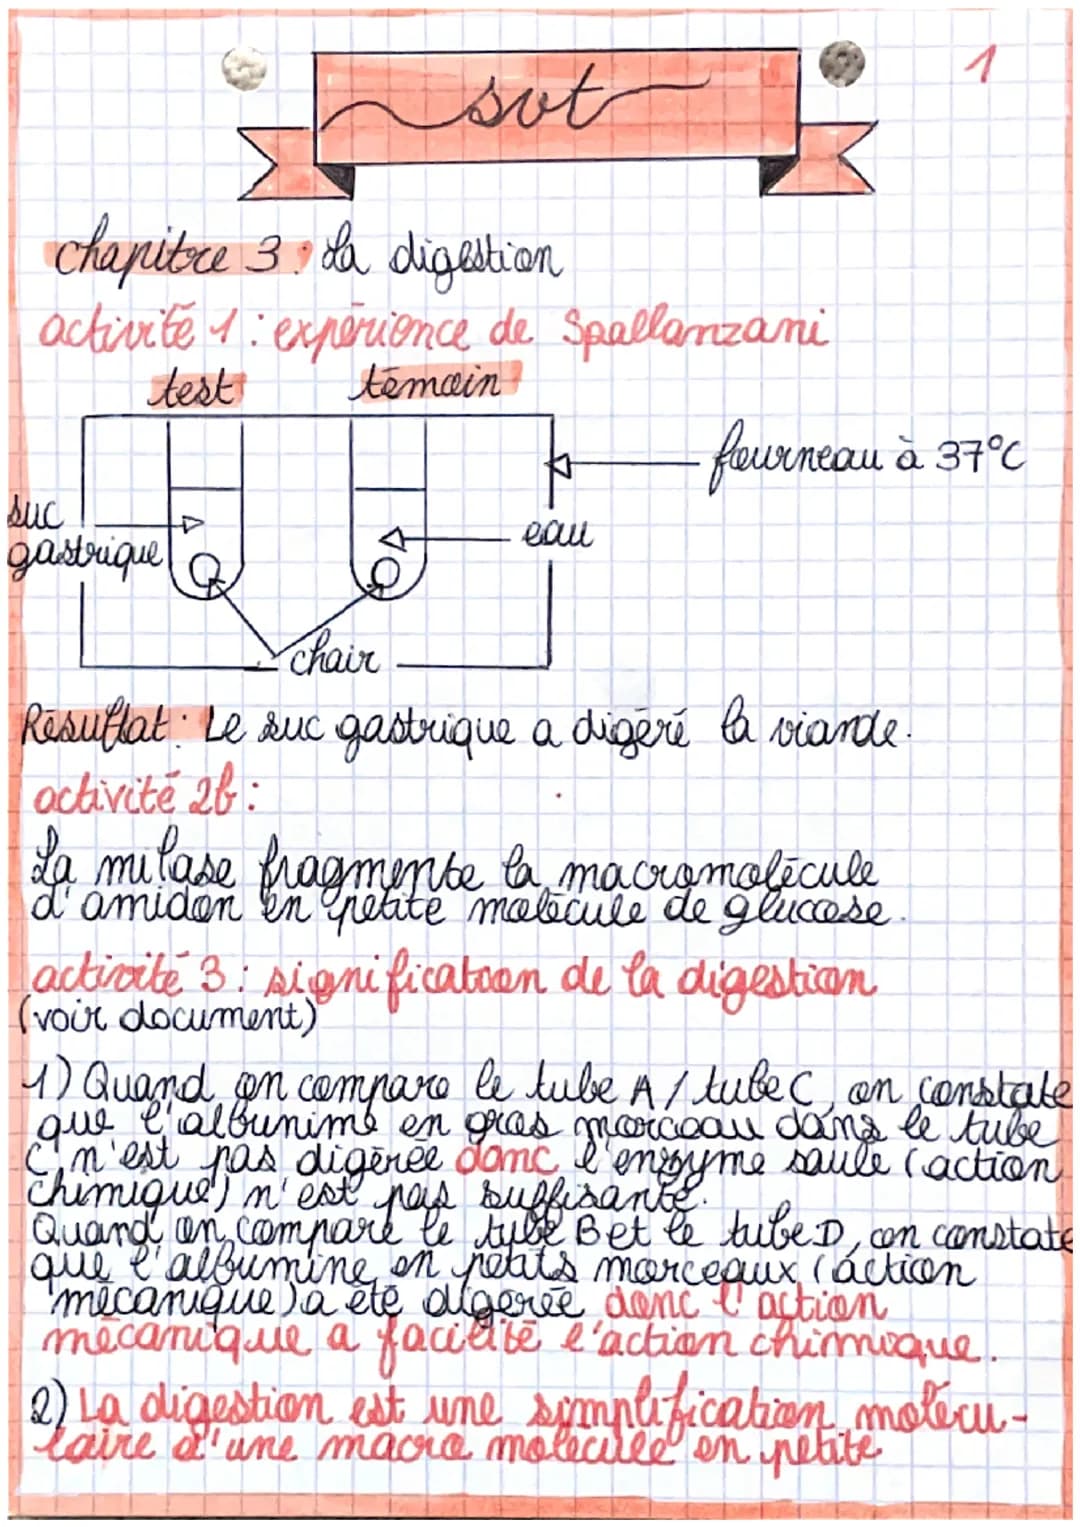 svt
1
chapitre 3 : La digestion
activité 1 : expérience de Spallanzani
test témoin
fourneau à 37°C
suc
gastrique
eau
chair
Résultat : Le suc gastrique a digéré la viande.
activité 2b :
La milase fragmente la macromolécule
d'amidon en petite molécule de glucose.
activité 3 : signification de la digestion
(voir document)
1) Quand on compare le tube A / tube C, on constate
que l'albunime en gros morceau dans le tube
C, n'est pas digérée donc l'enzyme saule (action
chimique) n'est pas suffisante.
Quand on compare le tube B et le tube D, on constate
que l'albumine en petits morceaux (action
mécanique) a été digérée donc l'action
mécanique a facilité l'action chimique.
2) La digestion est une simplification molécu-
laire d'une macro molécule en petite